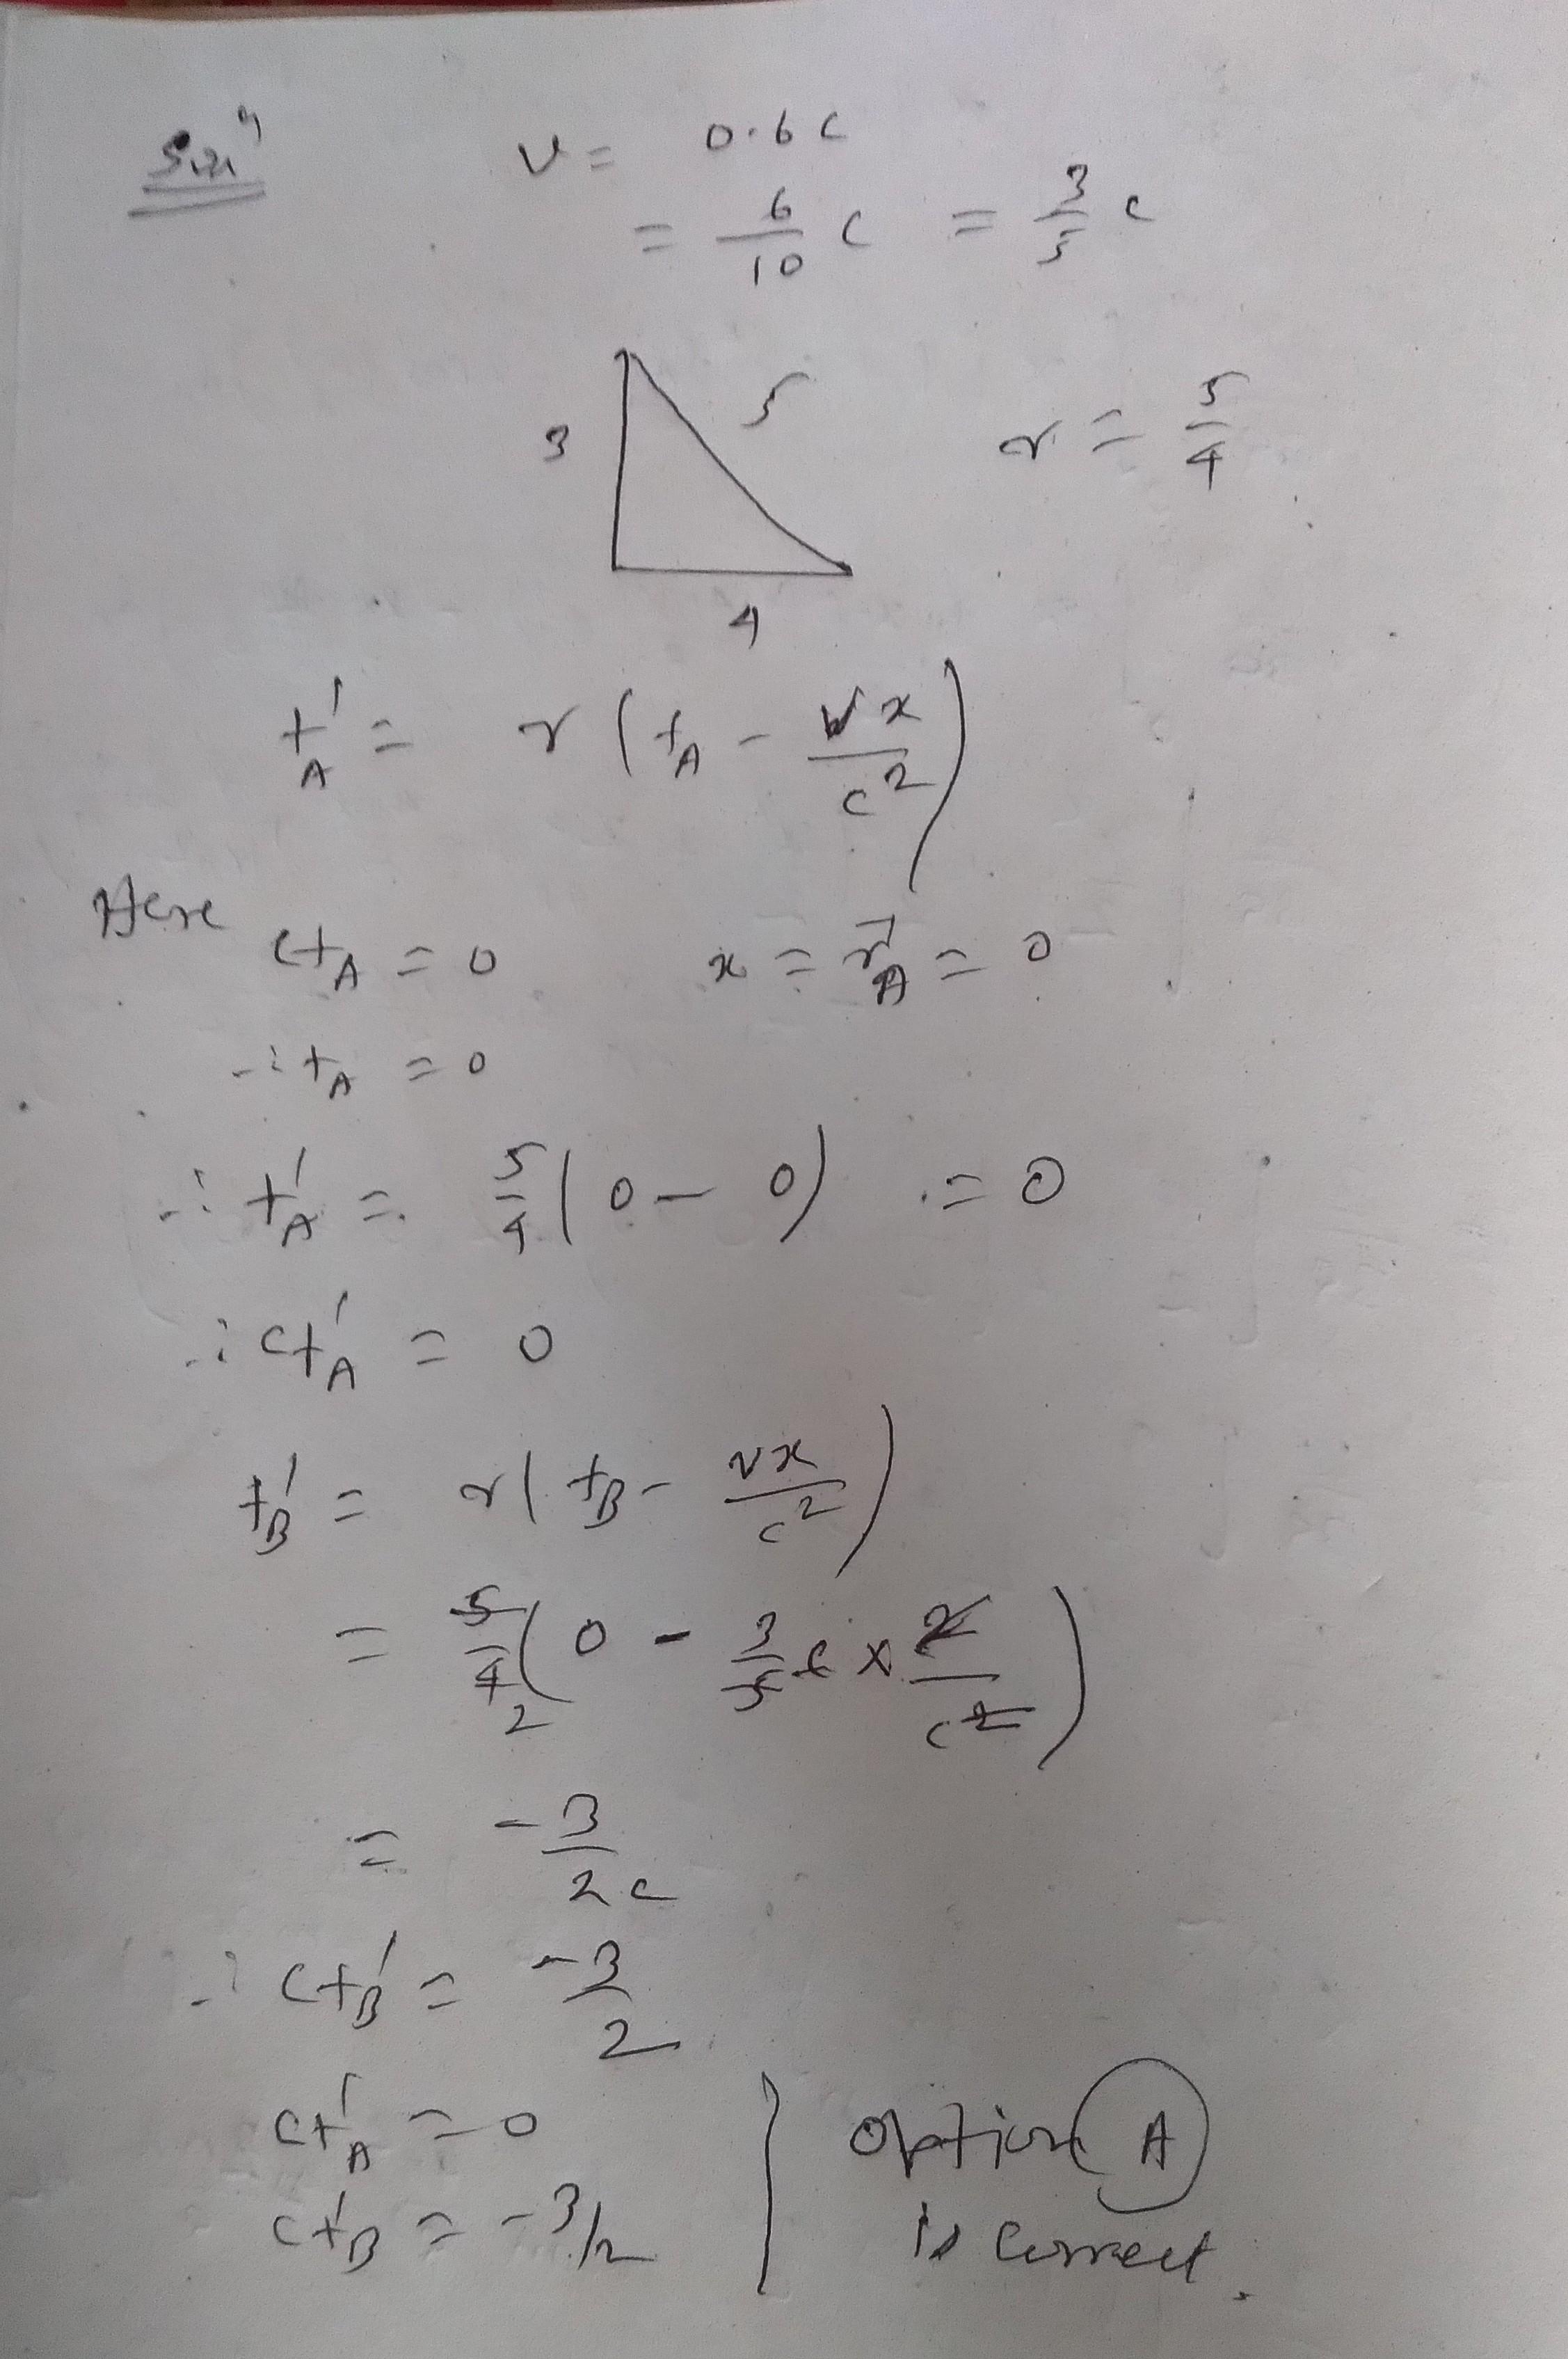 Soln
v = 0.6 c
= 6/10 c = 3/5 c
3 5 γ = 5/4
4
t'A = γ (tA - vx/c²)
Here ctA = 0 x = r⃗A = 0
∴ tA = 0
∴ t'A = 5/4 (0 - 0) = 0
∴ ct'A = 0
t'B = γ (tB - vx/c²)
= 5/4 2 (0 - 3/5 c × 2/c²)
= -3/2c
∴ ct'B = -3/2
ct'A = 0 option A
ct'B = -3/2 is correct.